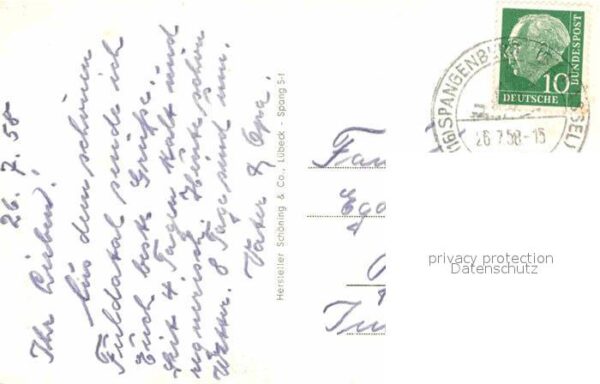 26.7.58
Ihr Lieben!
Aus dem schönen
Fuldatal sende ich
Euch beste Grüße.
Seit 4 Tagen kalt und
regnerisch. Heute schön
Wetter. 8 Tage sind um.
Vater & Opa.
Hersteller Schöning & Co., Lübeck - Spang 5-1
BUNDESPOST
10
DEUTSCHE
(16) SPANGENBERG
26.7.58-15
Fam
privacy protection
Datenschutz